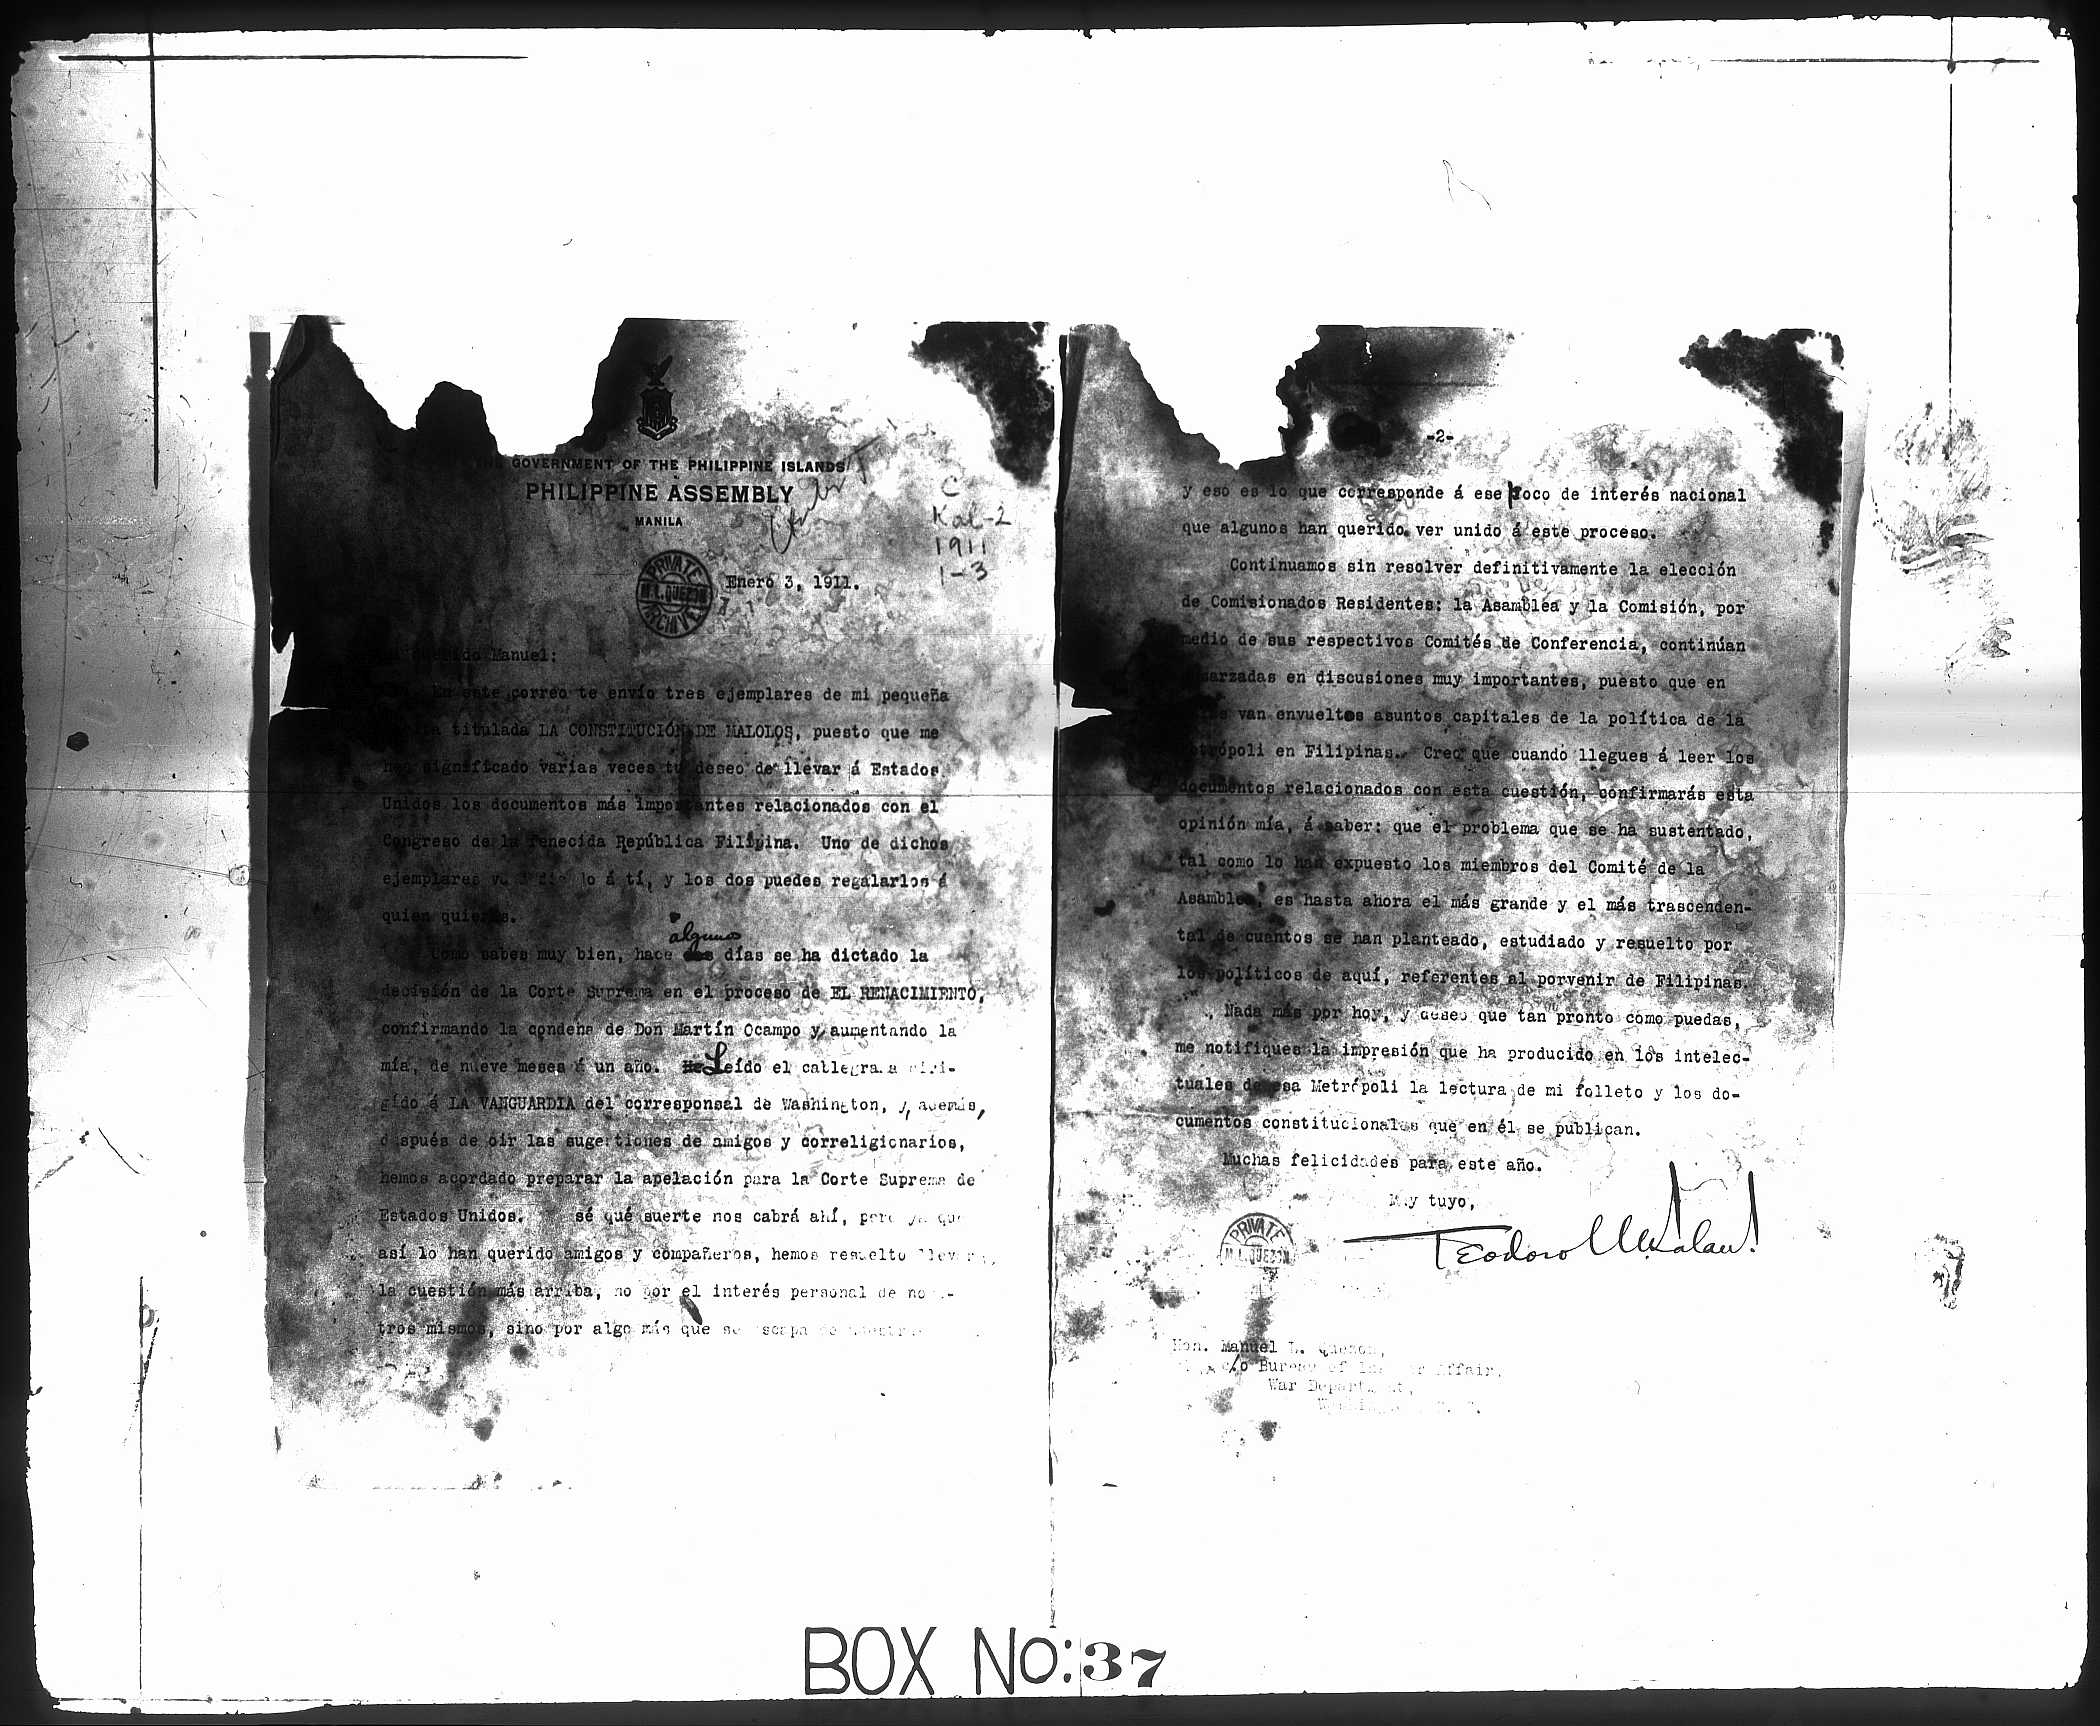 GOVERNMENT OF THE PHILIPPINE ISLANDS
PHILIPPINE ASSEMBLY
MANILA
C
Kal-2
1911
1-3
PRIVATE
M.L. QUEZON
ARCHIVE
Enero 3, 1911.
Manuel:
En este correo te envío tres ejemplares de mi pequeña
titulada LA CONSTITUCIÓN DE MALOLOS, puesto que me
has significado varias veces tu deseo de llevar á Estados
Unidos los documentos más importantes relacionados con el
Congreso de la fenecida República Filipina. Uno de dichos
ejemplares á tí, y los dos puedes regalarlos á
quien quieras.
algunos
Como sabes muy bien, hace días se ha dictado la
decisión de la Corte Suprema en el proceso de EL RENACIMIENTO,
confirmando la condena de Don Martín Ocampo y aumentando la
mía, de nueve meses á un año. Leído el cablegrama diri-
gido á LA VANGUARDIA del corresponsal de Washington, y, además,
después de oir las sugestiones de amigos y correligionarios,
hemos acordado preparar la apelación para la Corte Suprema de
Estados Unidos. sé qué suerte nos cabrá ahí, pero ya que
así lo han querido amigos y compañeros, hemos resuelto llevar
la cuestión más arriba, no por el interés personal de
tros mismos, sino por algo más que se
-2-
y eso es lo que corresponde á ese poco de interés nacional
que algunos han querido ver unido á este proceso.
Continuamos sin resolver definitivamente la elección
de Comisionados Residentes: la Asamblea y la Comisión, por
medio de sus respectivos Comités de Conferencia, continúan
en discusiones muy importantes, puesto que en
van envueltos asuntos capitales de la política de la
Metrópoli en Filipinas. Creo que cuando llegues á leer los
documentos relacionados con esta cuestión, confirmarás esta
opinión mía, á saber: que el problema que se ha sustentado,
tal como lo han expuesto los miembros del Comité de la
Asamblea, es hasta ahora el más grande y el más trascenden-
tal de cuantos se han planteado, estudiado y resuelto por
los políticos de aquí, referentes al porvenir de Filipinas.
Nada más por hoy, y deseo que tan pronto como puedas,
me notifiques la impresión que ha producido en los intelec-
tuales de esa Metrópoli la lectura de mi folleto y los do-
cumentos constitucionales que en él se publican.
Muchas felicidades para este año.
Muy tuyo,
Teodoro M. Kalaw
PRIVATE
M.L. QUEZON
Hon. Manuel L. Quezon,
c/o Bureau of Affair,
War Department,
BOX No: 37